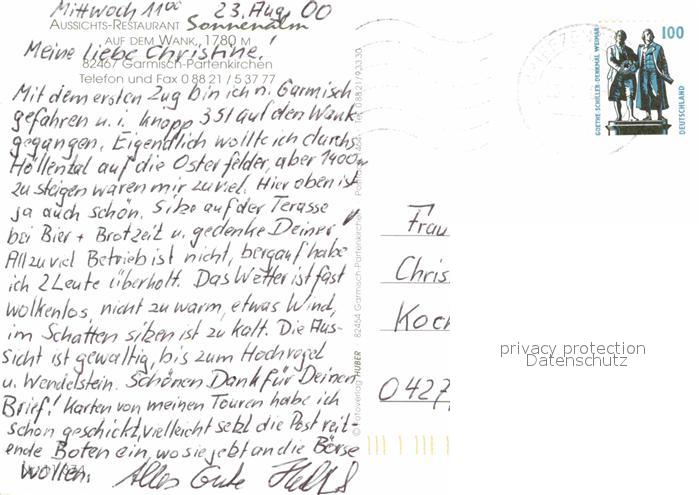 Mittwoch 11⁰⁰ 23. Aug. 00
AUSSICHTS-RESTAURANT Sonnenalm
AUF DEM WANK, 1780 M
82467 Garmisch-Partenkirchen
Telefon und Fax 0 88 21 / 5 37 77
Meine liebe Christine!
Mit dem ersten Zug bin ich n. Garmisch
gefahren u. i. knapp 3 St auf den Wank
gegangen. Eigendlich wollte ich durchs
Höllental auf die Osterfelder, aber 1400m
zu steigen waren mir zuviel. Hier oben ist
ja auch schön. Sitze auf der Terasse
bei Bier + Brotzeit u. gedenke Deiner
Allzuviel Betrieb ist nicht, bergauf habe
ich 2 Leute überholt. Das Wetter ist fast
wolkenlos, nicht zu warm, etwas Wind,
im Schatten sitzen ist zu kalt. Die Aus-
sicht ist gewaltig, bis zum Hochvogel
u. Wendelstein. Schönen Dank für Deinen
Brief! Karten von meinen Touren habe ich
schon geschickt, vielleicht setzt die Post reit-
ende Boten ein, wo sie jetzt an die Börse
wollen. Alles Gute
© Fotoverlag HUBER
82454 Garmisch-Partenkirchen
100
GOETHE-SCHILLER-DENKMAL WEIMAR
DEUTSCHLAND
Frau
Chris
Koch
0427
privacy protection
Datenschutz